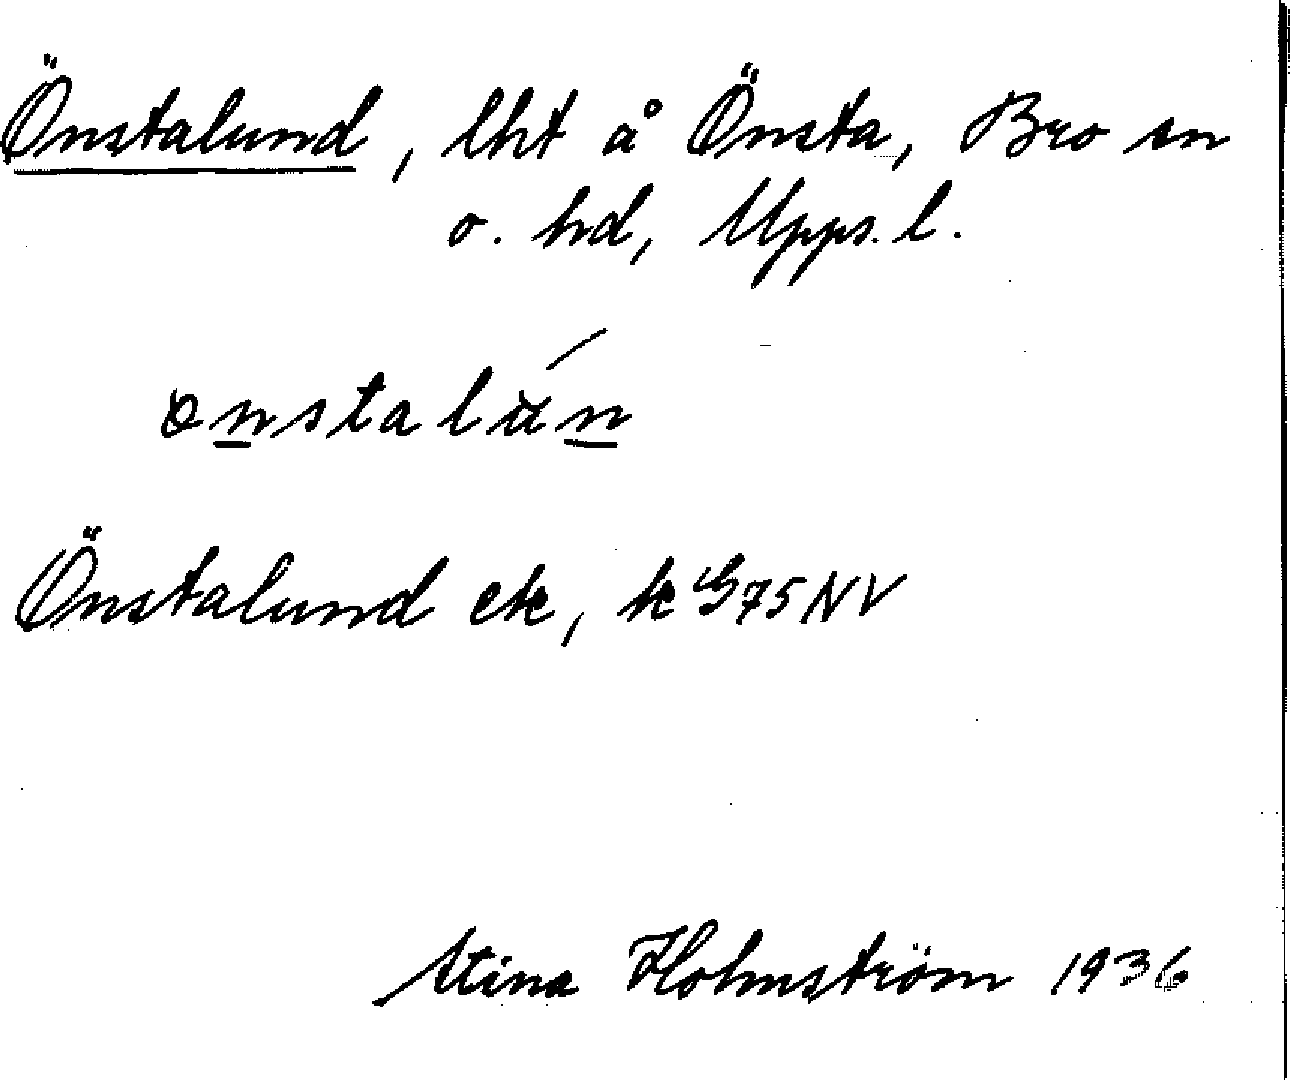 Önstalund, lht å Önsta, Bro sn
o. hd, Upps. l.
Önstalund ek, k G75NV
Stina Holmström 1936